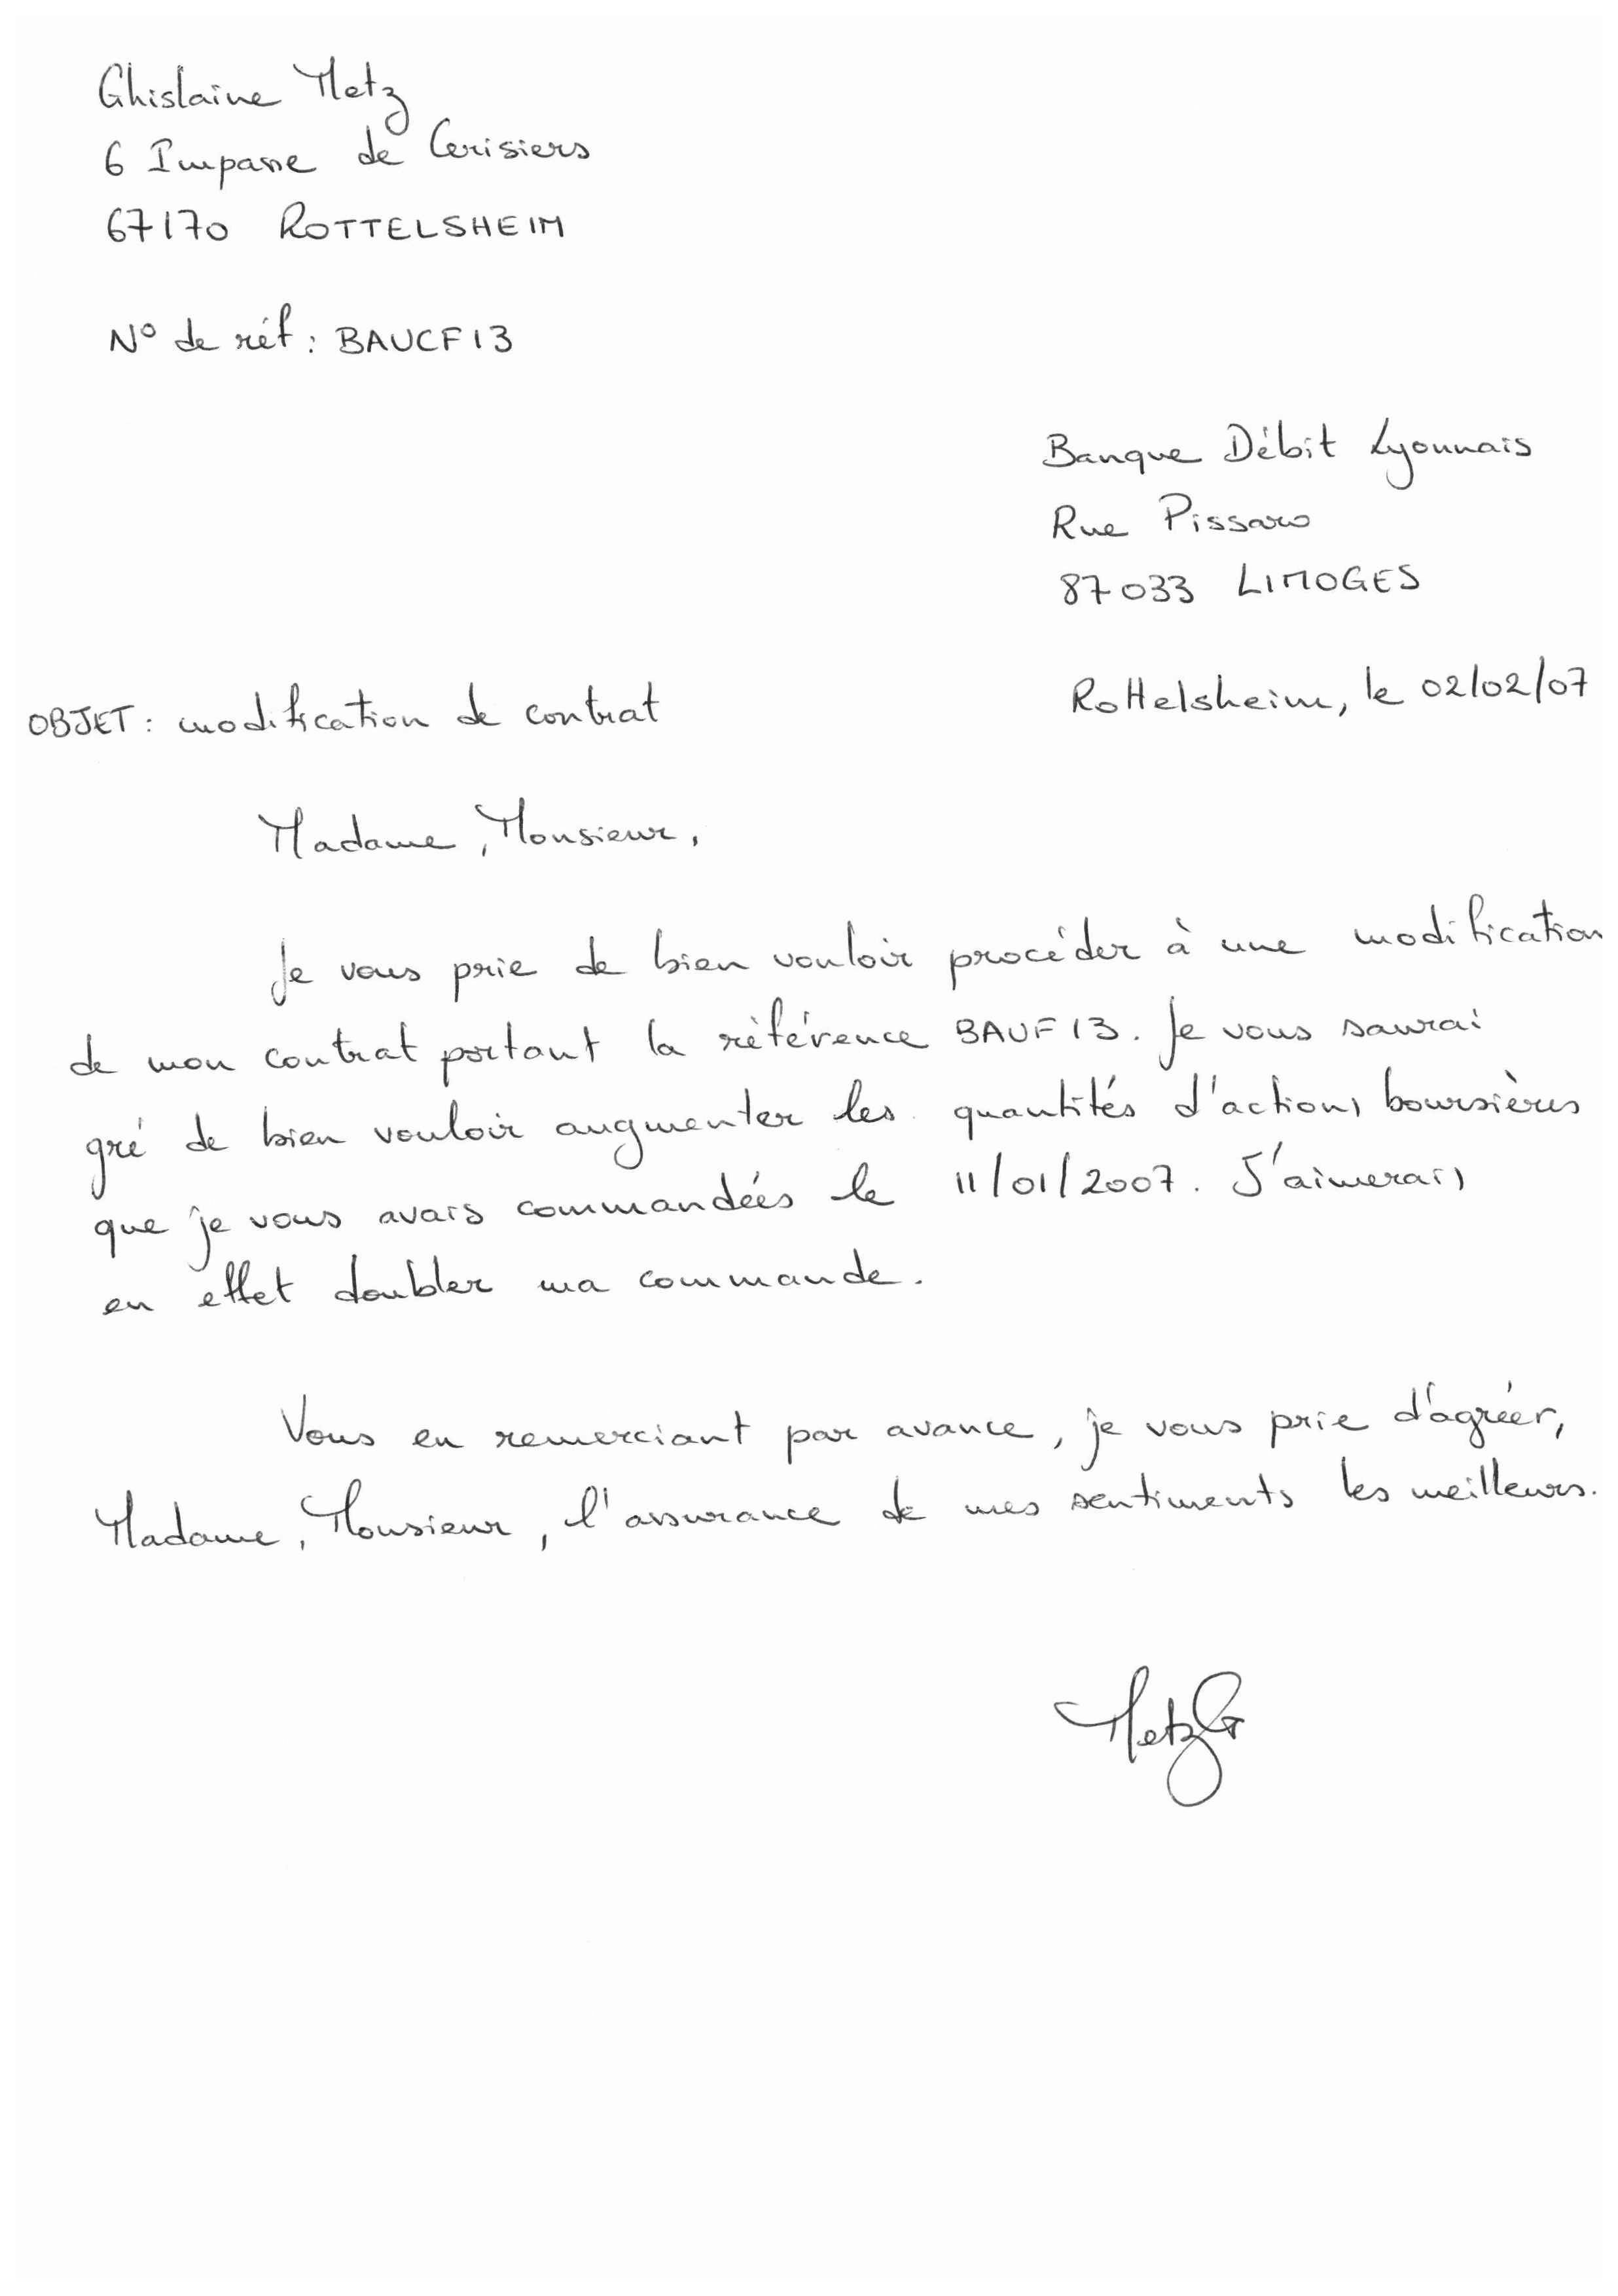 Ghislaine Metz
6 Impasse de Cerisiers
67170 ROTTELSHEIM
N° de réf : BAUCF13
Banque Débit Lyonnais
Rue Pissaro
87033 LIMOGES
Rottelsheim, le 02/02/07
OBJET : modification de contrat
Madame, Monsieur,
Je vous prie de bien vouloir procéder à une modification
de mon contrat portant la référence BAUF13. Je vous saurai
gré de bien vouloir augmenter les quantités d'actions boursières
que je vous avais commandées le 11/01/2007. J'aimerais
en effet doubler ma commande.
Vous en remerciant par avance, je vous prie d'agréer,
Madame, Monsieur, l'assurance de mes sentiments les meilleurs.
Metz G